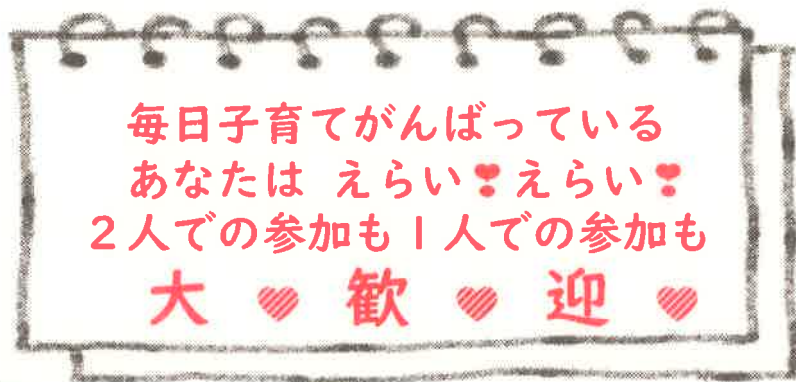 毎日子育てがんばっている
あなたは えらい❣えらい❣
２人での参加も１人での参加も
大♥歓♥迎♥